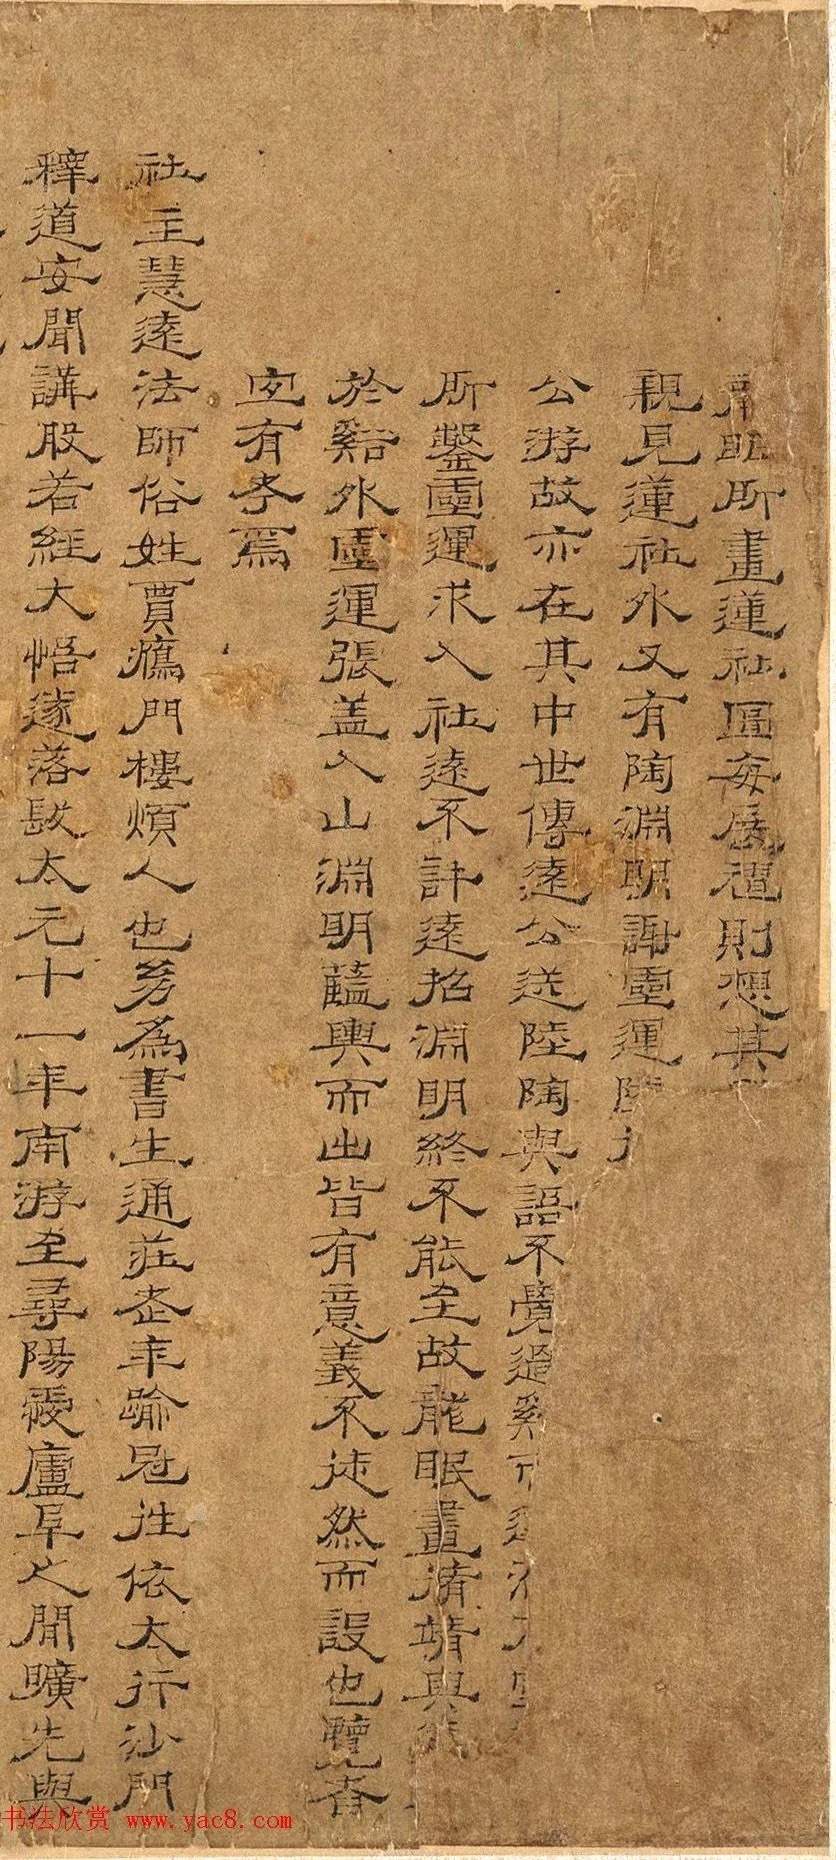 眠所畫蓮社圖每展禮則想其
親見蓮社外又有陶淵明謝靈運陸
公游故亦在其中世傳遠公送陸陶與語不覺過谿
所鑿靈運求入社遠不許遠招淵明終不能至故龍眠畫脩靜與
於谿外靈運張盖入山淵明籃輿而出皆有意義不徒然而設也覽者
宜有考焉
社主慧遠法師俗姓賈鴈門樓煩人也㓜為書生通莊老年踰冠往依太行沙門
釋道安聞講般若經大悟遂落髮太元十一年南游至尋陽愛廬阜之閒曠先與
书法欣赏 www.yac8.com